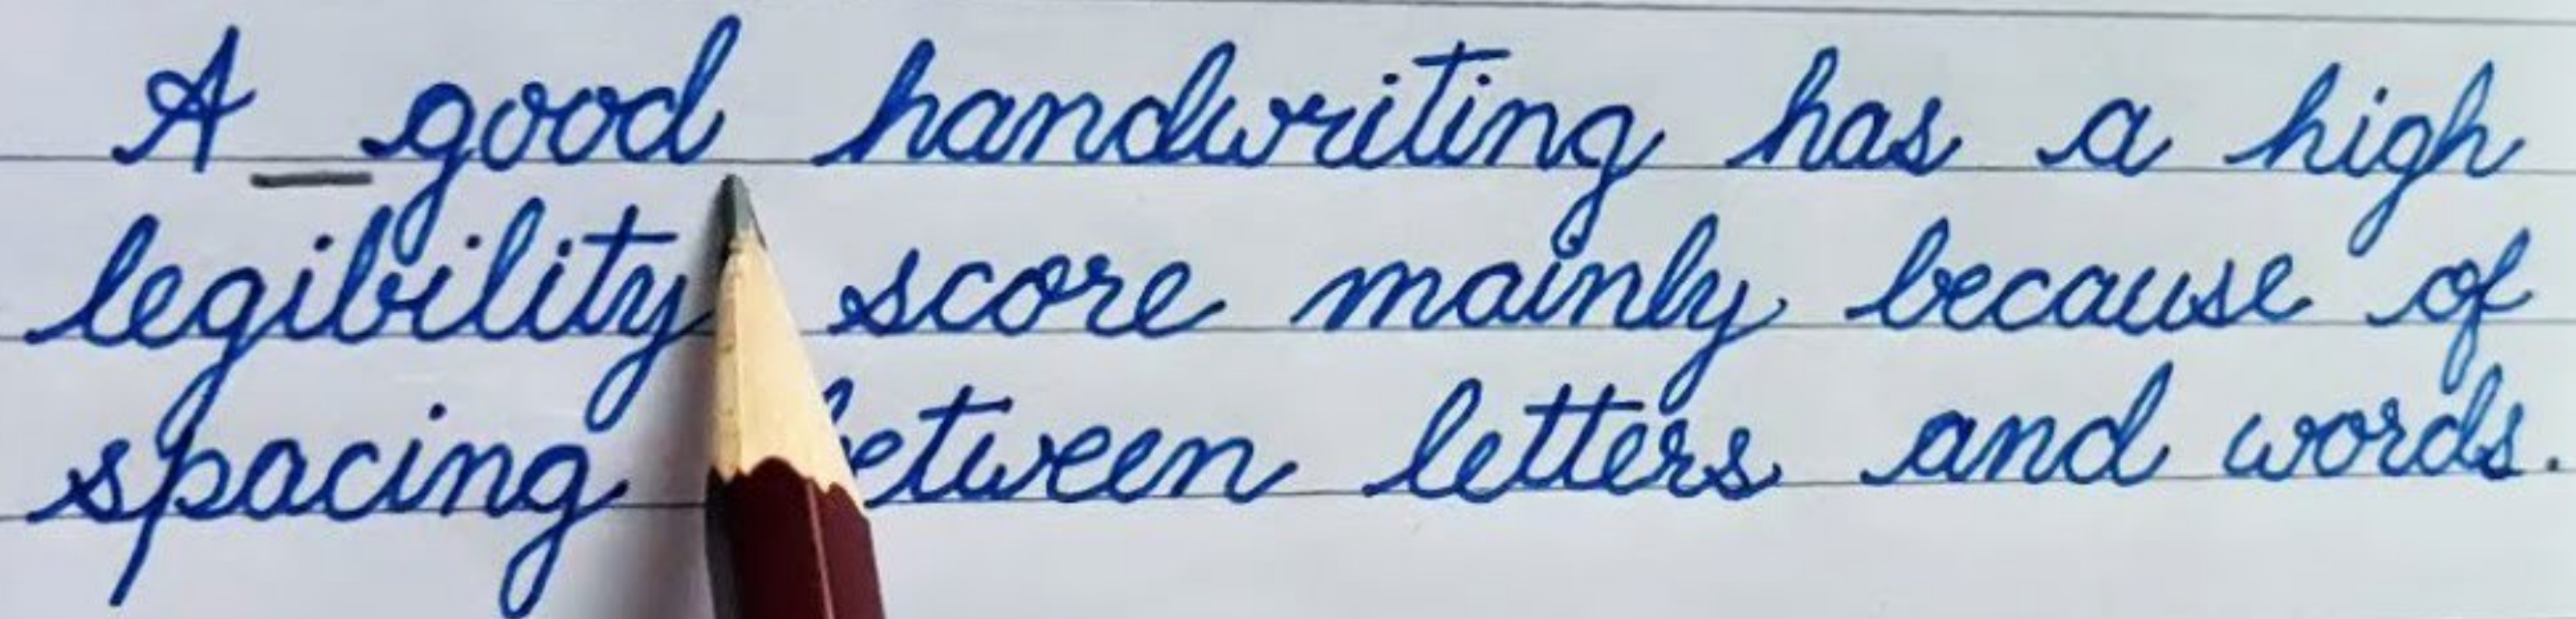 A good handwriting has a high
legibility score mainly because of
spacing between letters and words.